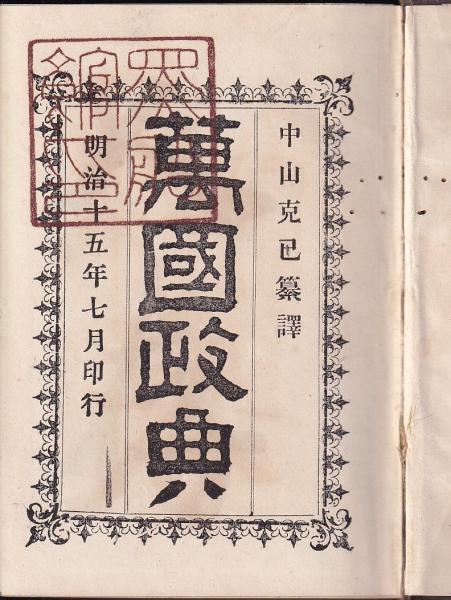 中山克己纂譯
萬國政典
明治十五年七月印行